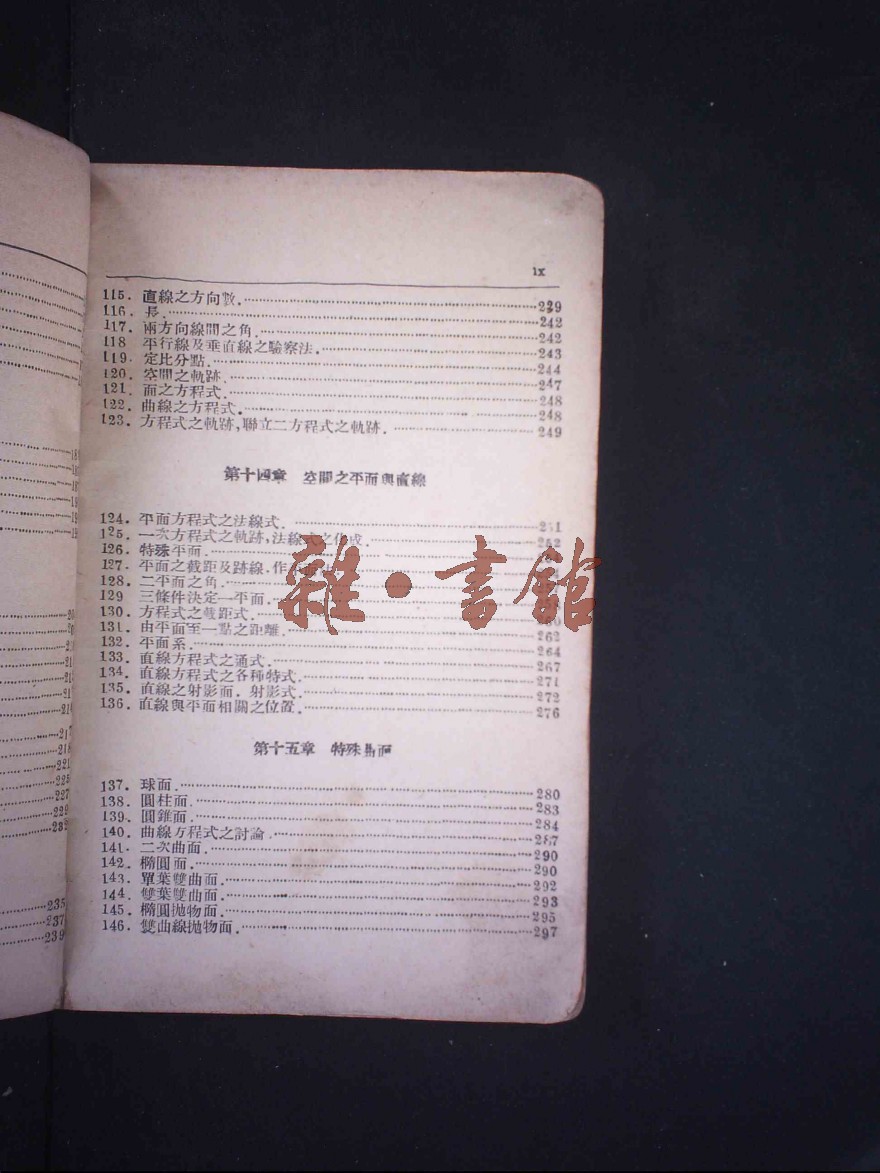 ix
115. 直線之方向數 239
116. 長 242
117. 兩方向線間之角 242
118 平行線及垂直線之驗察法 243
119. 定比分點 244
120. 空間之軌跡 247
121. 面之方程式 248
122. 曲線之方程式 248
123. 方程式之軌跡,聯立二方程式之軌跡 249
第十四章 空間之平面與直線
124. 平面方程式之法線式 251
125. 一次方程式之軌跡,法線式之化成 252
126. 特殊平面
127. 平面之截距及跡線,作
128. 二平面之角
129 三條件決定一平面
130. 方程式之截距式 260
131. 由平面至一點之距離 262
132. 平面系 264
133. 直線方程式之通式 267
134. 直線方程式之各種特式 271
135. 直線之射影面. 射影式 272
136. 直線與平面相關之位置 276
第十五章 特殊曲面
137. 球面 280
138. 圓柱面 283
139. 圓錐面 284
140. 曲線方程式之討論 287
141. 二次曲面 290
142. 橢圓面 290
143. 單葉雙曲面 292
144. 雙葉雙曲面 293
145. 橢圓拋物面 295
146. 雙曲線拋物面 297
雜·書館
217
218
221
225
227
229
232
235
237
239